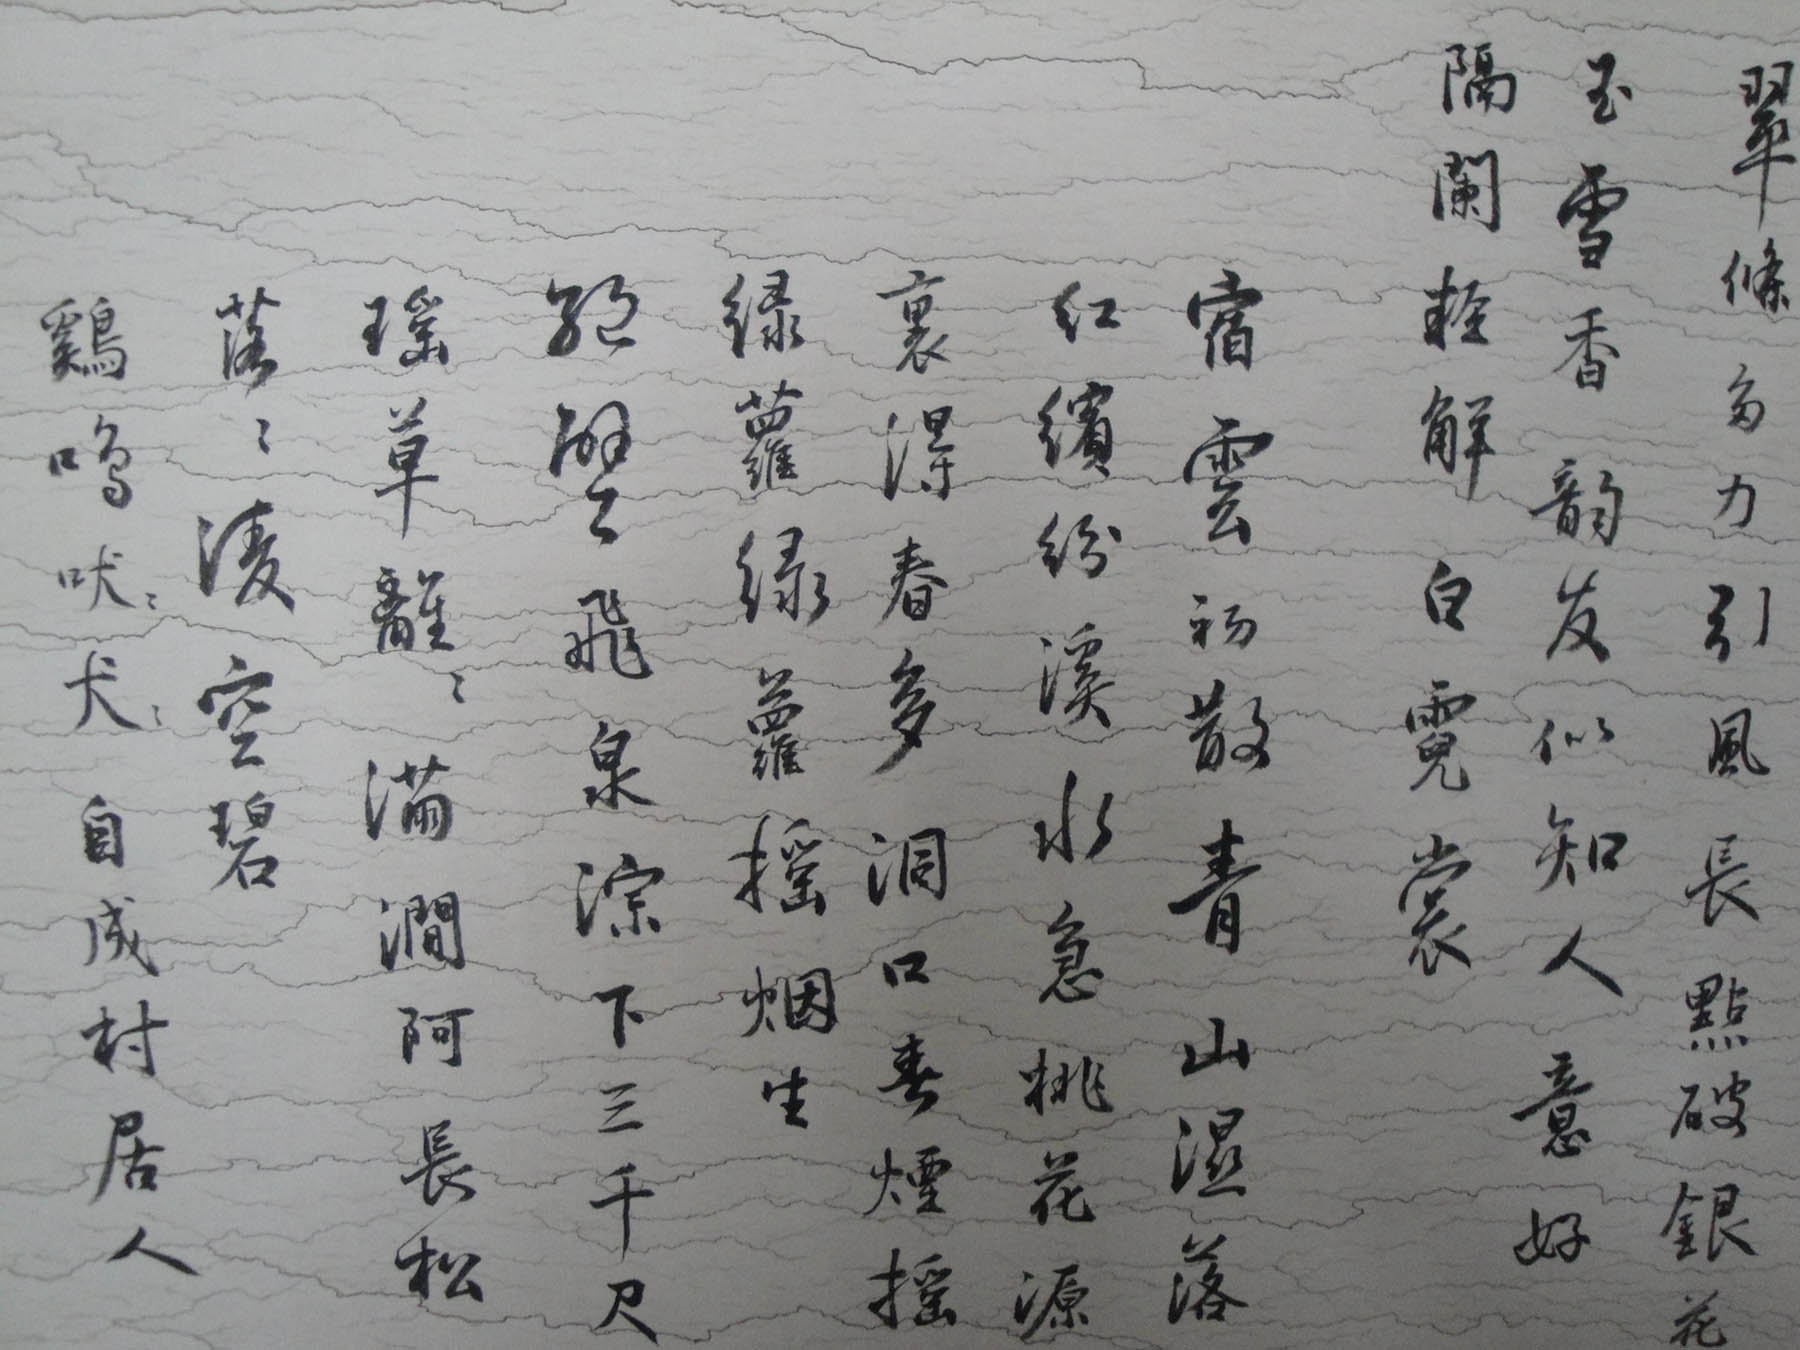 翠條多力引風長點破銀花
玉雪香韵友似知人意好
隔闌輕解白霓裳
宿雲初散青山濕落
紅繽紛溪水急桃花源
裏得春多洞口春煙摇
緑蘿緑蘿摇烟生
絕壁飛泉淙下三千尺
瑶草離〻滿澗阿長松
落〻凌空碧
鷄鳴吠〻犬〻自成村居人